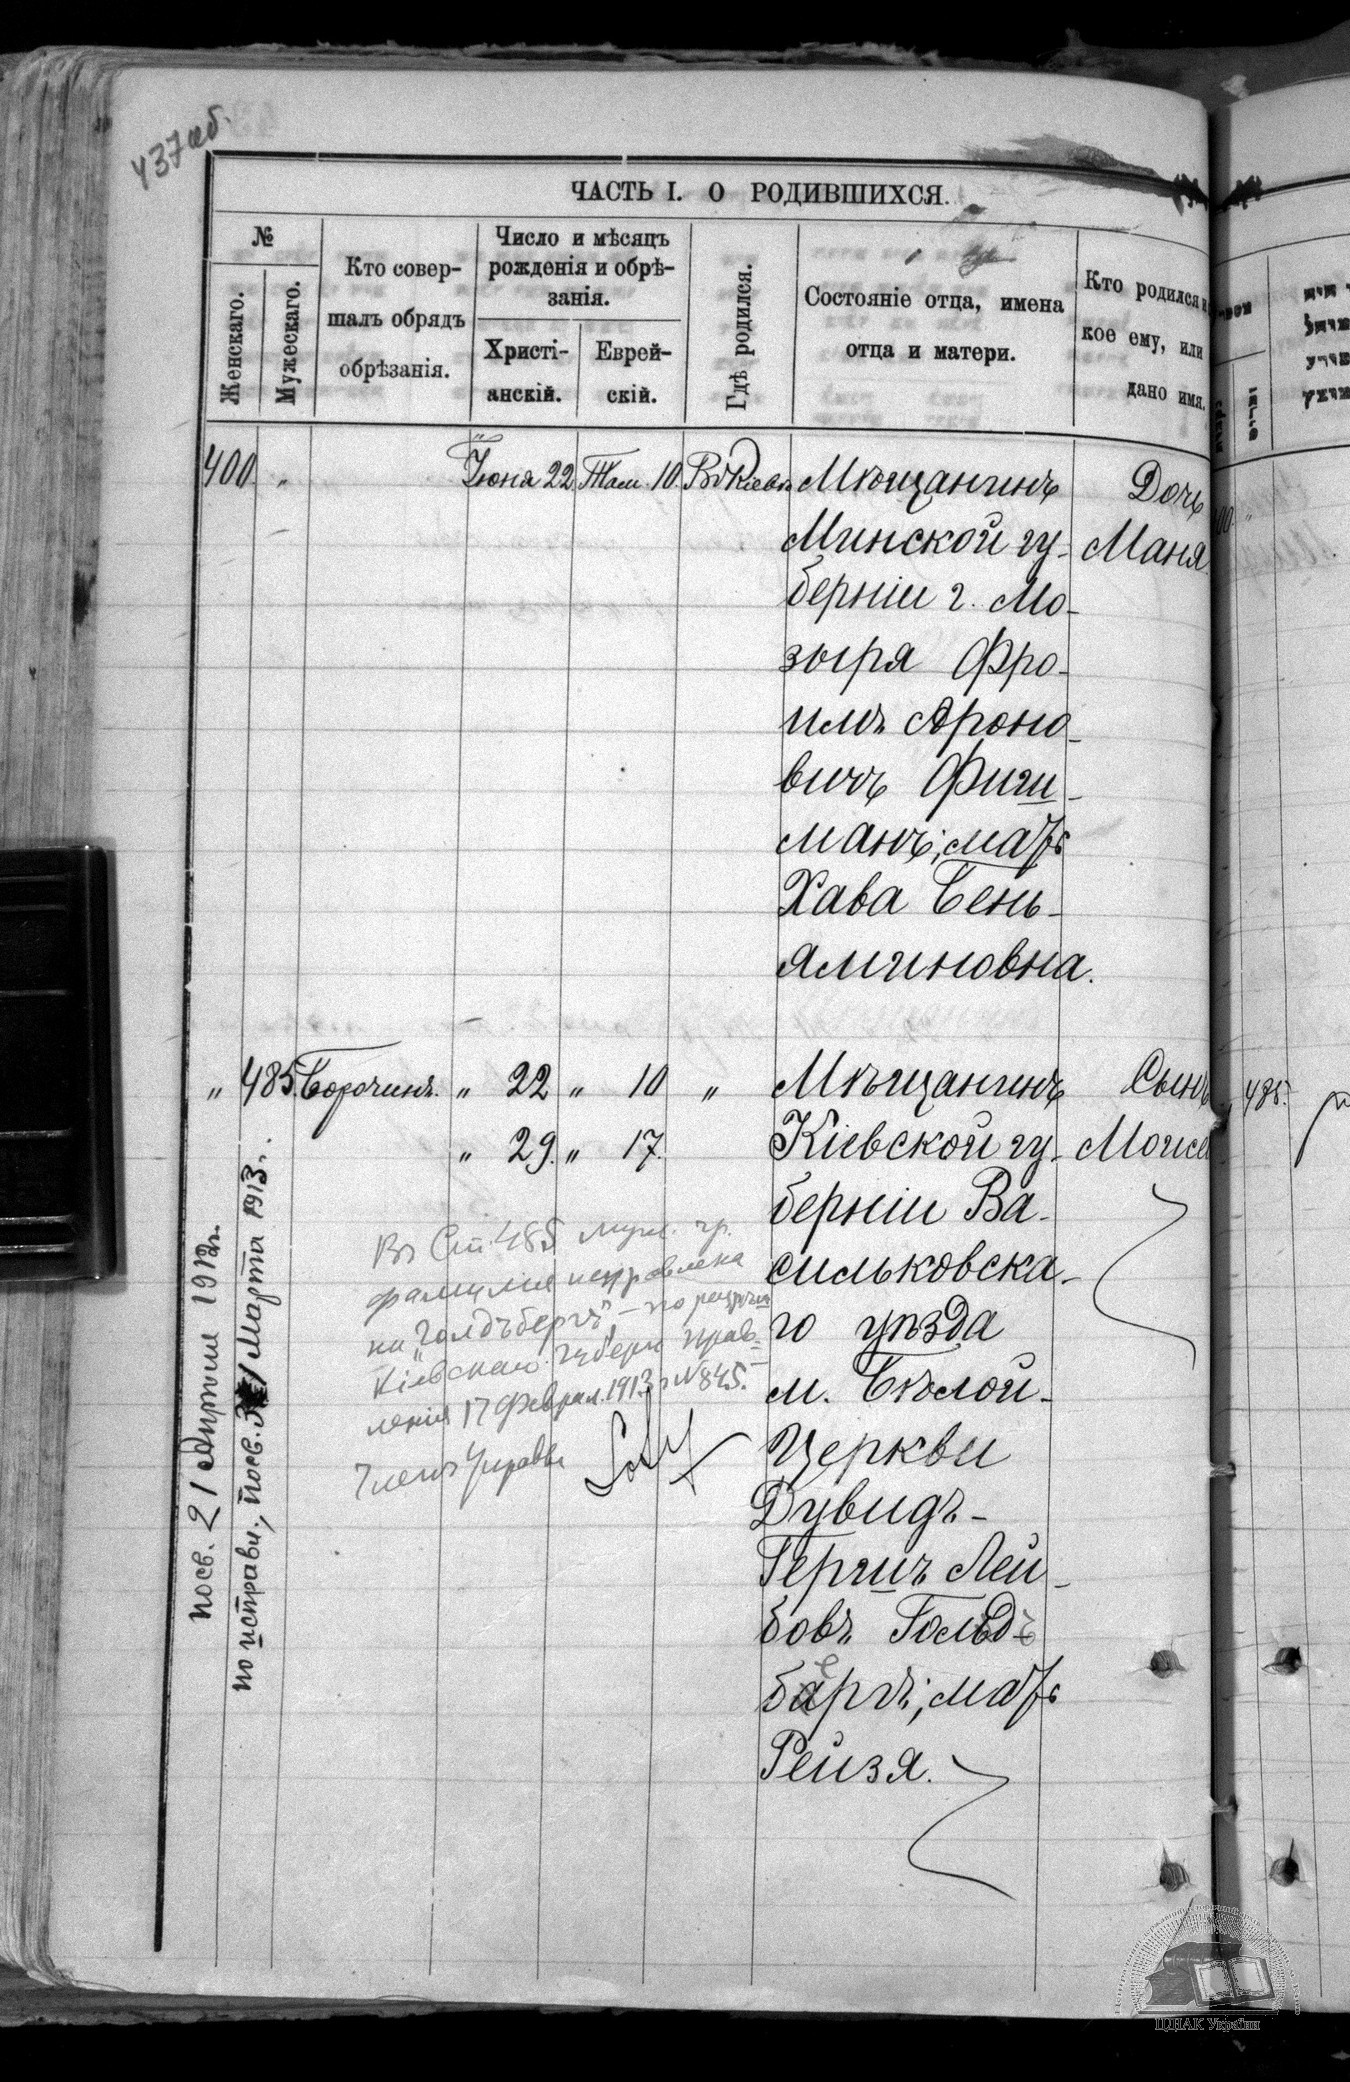 437 об.
ЧАСТЬ I. О РОДИВШИХСЯ.
№
Женскаго.
Мужескаго.
Кто совер-
шалъ обрядъ
обрѣзанія.
Число и мѣсяцъ
рожденія и обрѣ-
занія.
Христі-
анскій.
Еврей-
скій.
Гдѣ родился.
Состояніе отца, имена
отца и матери.
Кто родился и
кое ему, или
дано имя.
400. „ Іюня 22 Там. 10. Въ Кіевѣ Мѣщанинъ Дочь
Минской гу- Маня.
берніи г. Мо-
зыря Фро-
имъ Ароно-
вичъ Фиги-
манъ; мать
Хава Бень-
яминовна.
„ 485. Борочинъ. „ 22 „ 10 „ Мѣщанинъ Сынъ
„ 29. „ 17. Кіевской гу- Моисе
берніи Ва-
сильковска-
го уѣзда
м. Бѣлой-
Церкви
Дувидъ-
Гершъ Лей-
бовъ Гольдъ
бергъ; мать
Рейзя.
Въ Ст. 485 муж. гр.
фамилія исправлена
на „Голдъбергъ" – по
Кіевскаго Губерн. Прав-
ленія 17 Феврал. 1913 г. № 845.
Членъ Управы
посв. 21 Апрѣля 1912 г.
по исправ., посв. 1 Марта 1913 г.
485.
ЦДІАК України